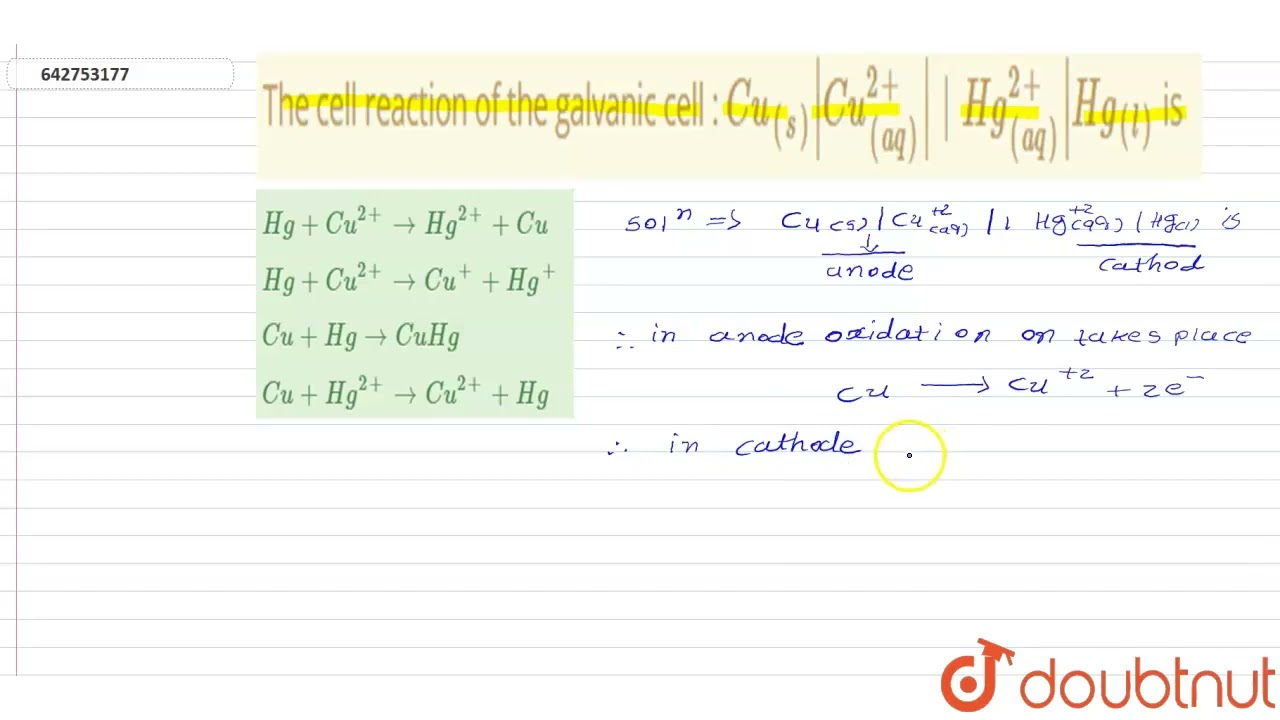 642753177
The cell reaction of the galvanic cell : Cu(s)|Cu²⁺(aq)| | Hg²⁺(aq)|Hg(l) is
Hg + Cu²⁺ → Hg²⁺ + Cu
Hg + Cu²⁺ → Cu⁺ + Hg⁺
Cu + Hg → CuHg
Cu + Hg²⁺ → Cu²⁺ + Hg
solⁿ => Cu(s)/Cu⁺²(aq) / | Hg⁺²(aq) / Hg(l) is
↓
anode cathod
∴ in anode oxidation on takes place
Cu → Cu⁺² + 2e⁻
∴ in cathode
doubtnut